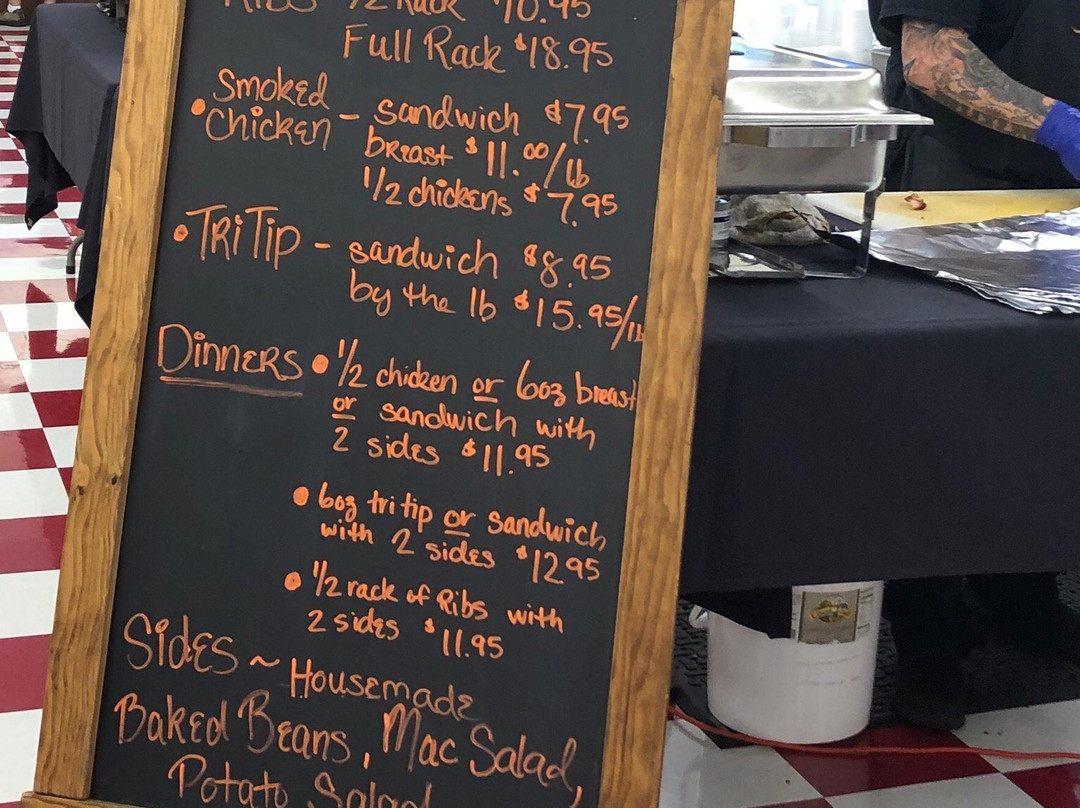 RIBS 1/2 Rack $10.95
Full Rack $18.95
• Smoked Chicken - sandwich $7.95
breast $11.00/lb
1/2 chickens $7.95
• TRi Tip - sandwich $8.95
by the lb $15.95/lb
Dinners • 1/2 chicken or 6oz breast
or sandwich with
2 sides $11.95
• 6oz tri tip or sandwich
with 2 sides $12.95
• 1/2 rack of Ribs with
2 sides $11.95
Sides ~ Housemade
Baked Beans, Mac Salad,
Potato Salad